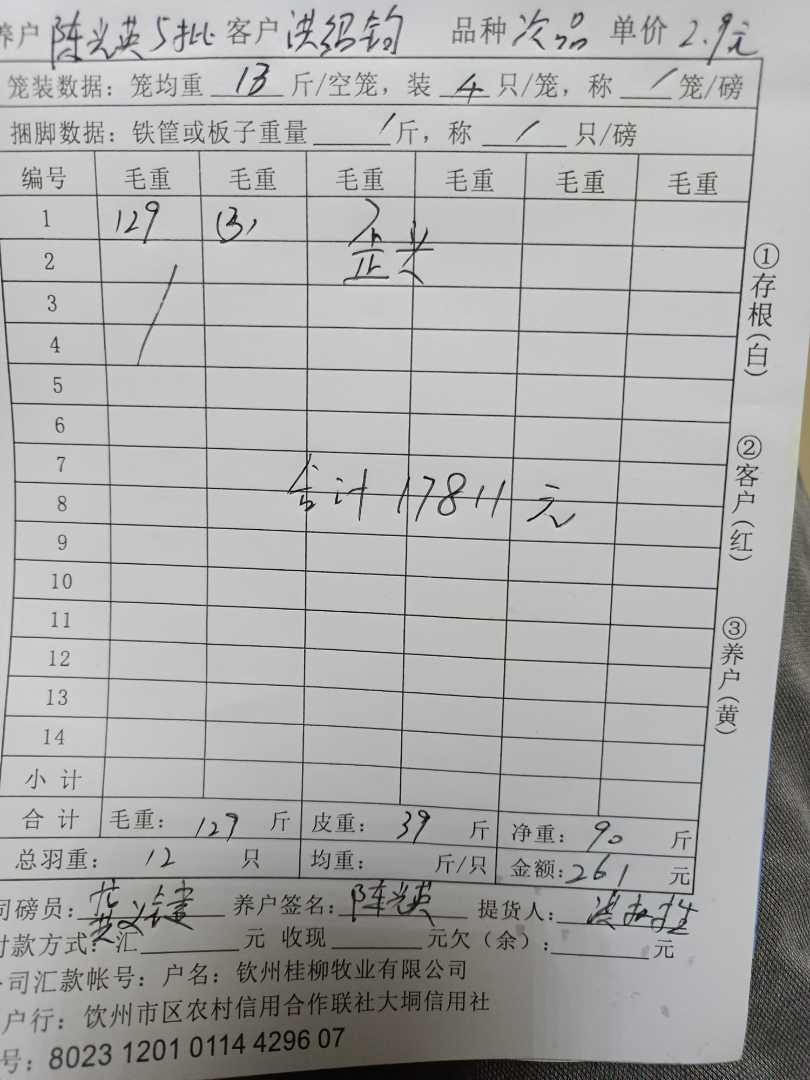 养户 陈光英5批 客户 洪绍钧 品种 次品 单价 2.9元
笼装数据：笼均重 13 斤/空笼，装 4 只/笼，称 / 笼/磅
捆脚数据：铁筐或板子重量 / 斤，称 / 只/磅
编号 毛重 毛重 毛重 毛重 毛重 毛重
1 129 (3)
2 歪头
3
4
5
6
7
合计 17811 元
8
9
10
11
12
13
14
小计
合计 毛重： 129 斤 皮重： 39 斤 净重： 90 斤
总羽重： 12 只 均重： 斤/只 金额：261 元
司磅员： 养户签名：陈光英 提货人：
付款方式：汇 元 收现 元欠（余）： 元
公司汇款帐号：户名：钦州桂柳牧业有限公司
户行：钦州市区农村信用合作联社大垌信用社
号：8023 1201 0114 4296 07
①存根（白）
②客户（红）
③养户（黄）